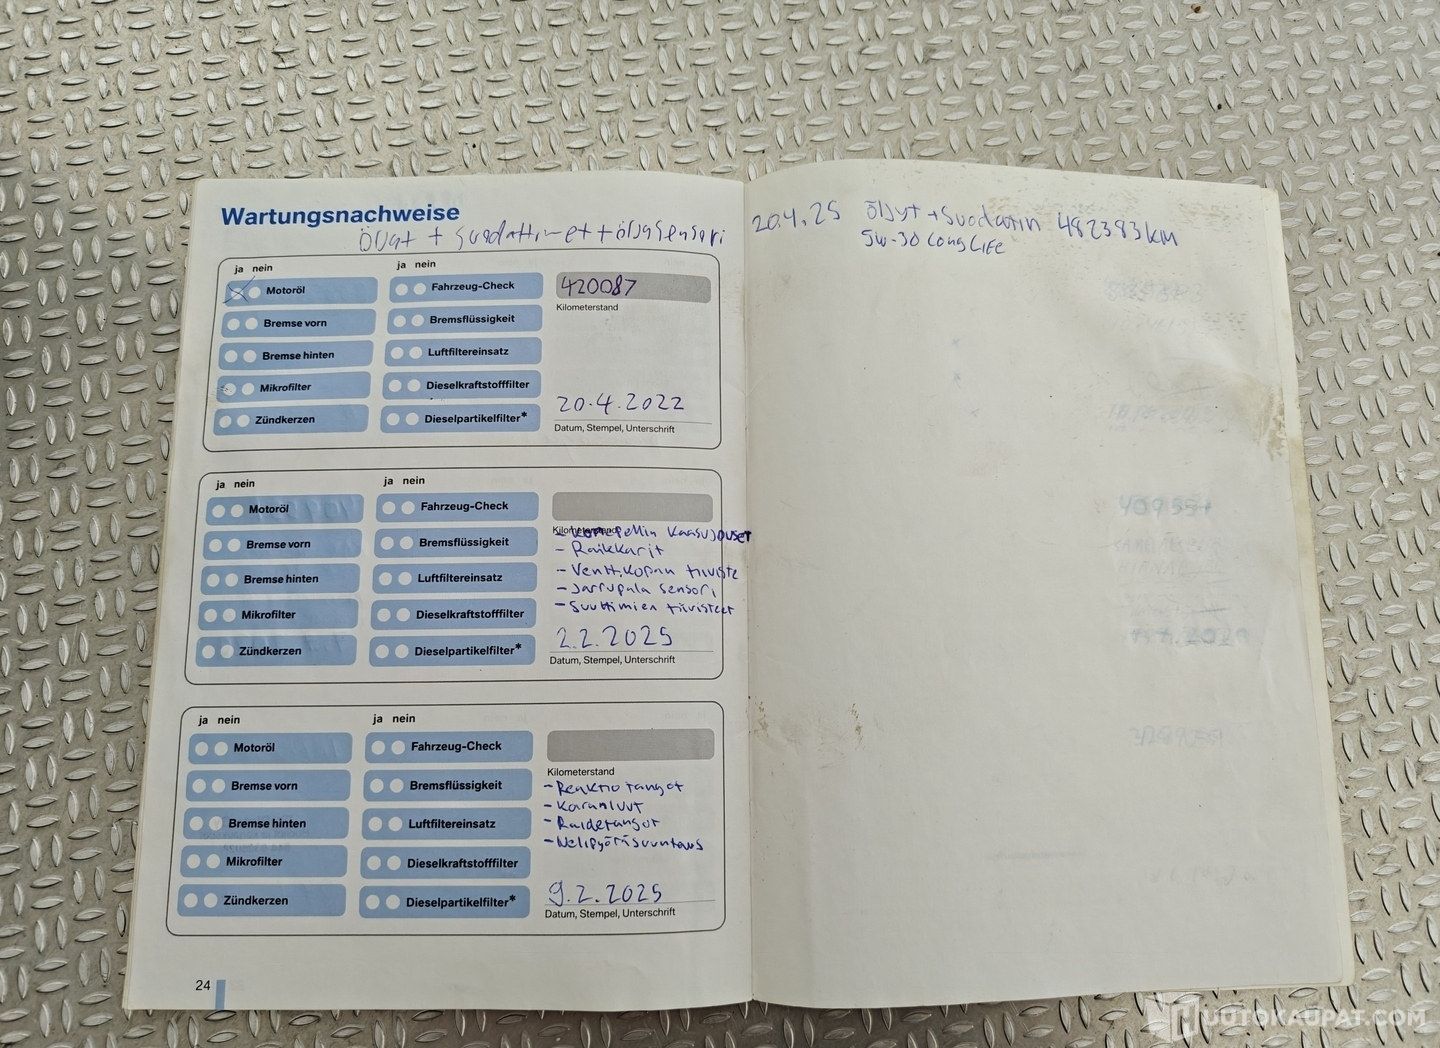 Wartungsnachweise
Öljyt + Suodattimet + öljysensori
ja nein
ja nein
Motoröl
Fahrzeug-Check
420087
Kilometerstand
Bremse vorn
Bremsflüssigkeit
Bremse hinten
Luftfiltereinsatz
Mikrofilter
Dieselkraftstofffilter
Zündkerzen
Dieselpartikelfilter*
20.4.2022
Datum, Stempel, Unterschrift
ja nein
ja nein
Motoröl
Fahrzeug-Check
Kilometerstand
Bremse vorn
Bremsflüssigkeit
Bremse hinten
Luftfiltereinsatz
Mikrofilter
Dieselkraftstofffilter
Zündkerzen
Dieselpartikelfilter*
- konepellin kaasujouset
- Raikkarit
- Ventt.kopan tiiviste
- Jarrupala sensori
- Suuttimien tiivisteet
2.2.2025
Datum, Stempel, Unterschrift
ja nein
ja nein
Motoröl
Fahrzeug-Check
Kilometerstand
Bremse vorn
Bremsflüssigkeit
Bremse hinten
Luftfiltereinsatz
Mikrofilter
Dieselkraftstofffilter
Zündkerzen
Dieselpartikelfilter*
- Reaktio tangot
- Karanluut
- Raidetangot
- Nelipyöräsuuntaus
9.2.2025
Datum, Stempel, Unterschrift
24
20.4.25 Öljyt + Suodatin 482383 km
5w-30 LongLife
UUTOKAUPAT.COM